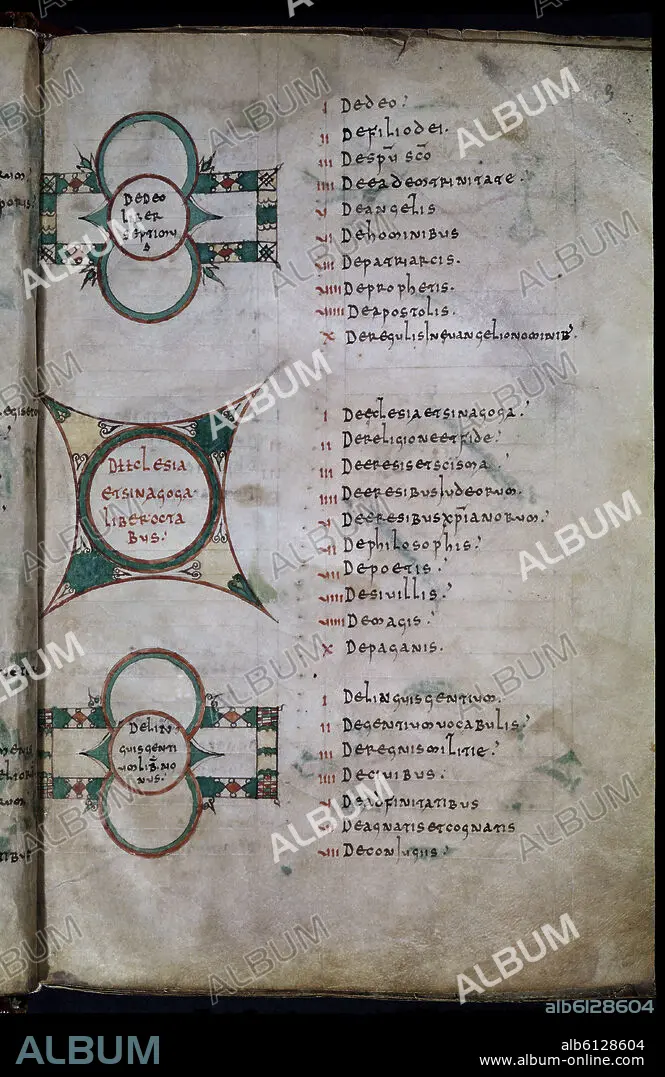 Dedeo
liber
septimu
s
I Dedeo.
II Defiliodei.
III Despū sc̄o
IIII Deeademtrinitate.
V Deangelis
VI Dehominibus
VII Depatriarcis.
VIII Deprophetis.
VIIII Deapostolis.
X Deregulisineuangelionominib'.
Deeclesia
etsinagoga
liberocta
bus.
I Deeclesiaetsinagoga.
II Dereligioneetfide.
III Deeresisetscisma
IIII DeeresibusIudeorum.
V Deeresibusxp̄ianorum.
VI Dephilosophis.
VII Depoetis.
VIII Desivillis.
VIIII Demagis.
X Depaganis.
Delin
guisgenti
umlib̄no
nus.
I Delinguisgentium.
II Degentiumvocabulis.
III Deregnismilitie.
IIII Decivibus.
V Deadfinitatibus
VI Deagnatisetcognatis
VII Deconiugiis.
ALBUM
alb6128604
ALBUM
alb6128604
www.album-online.com